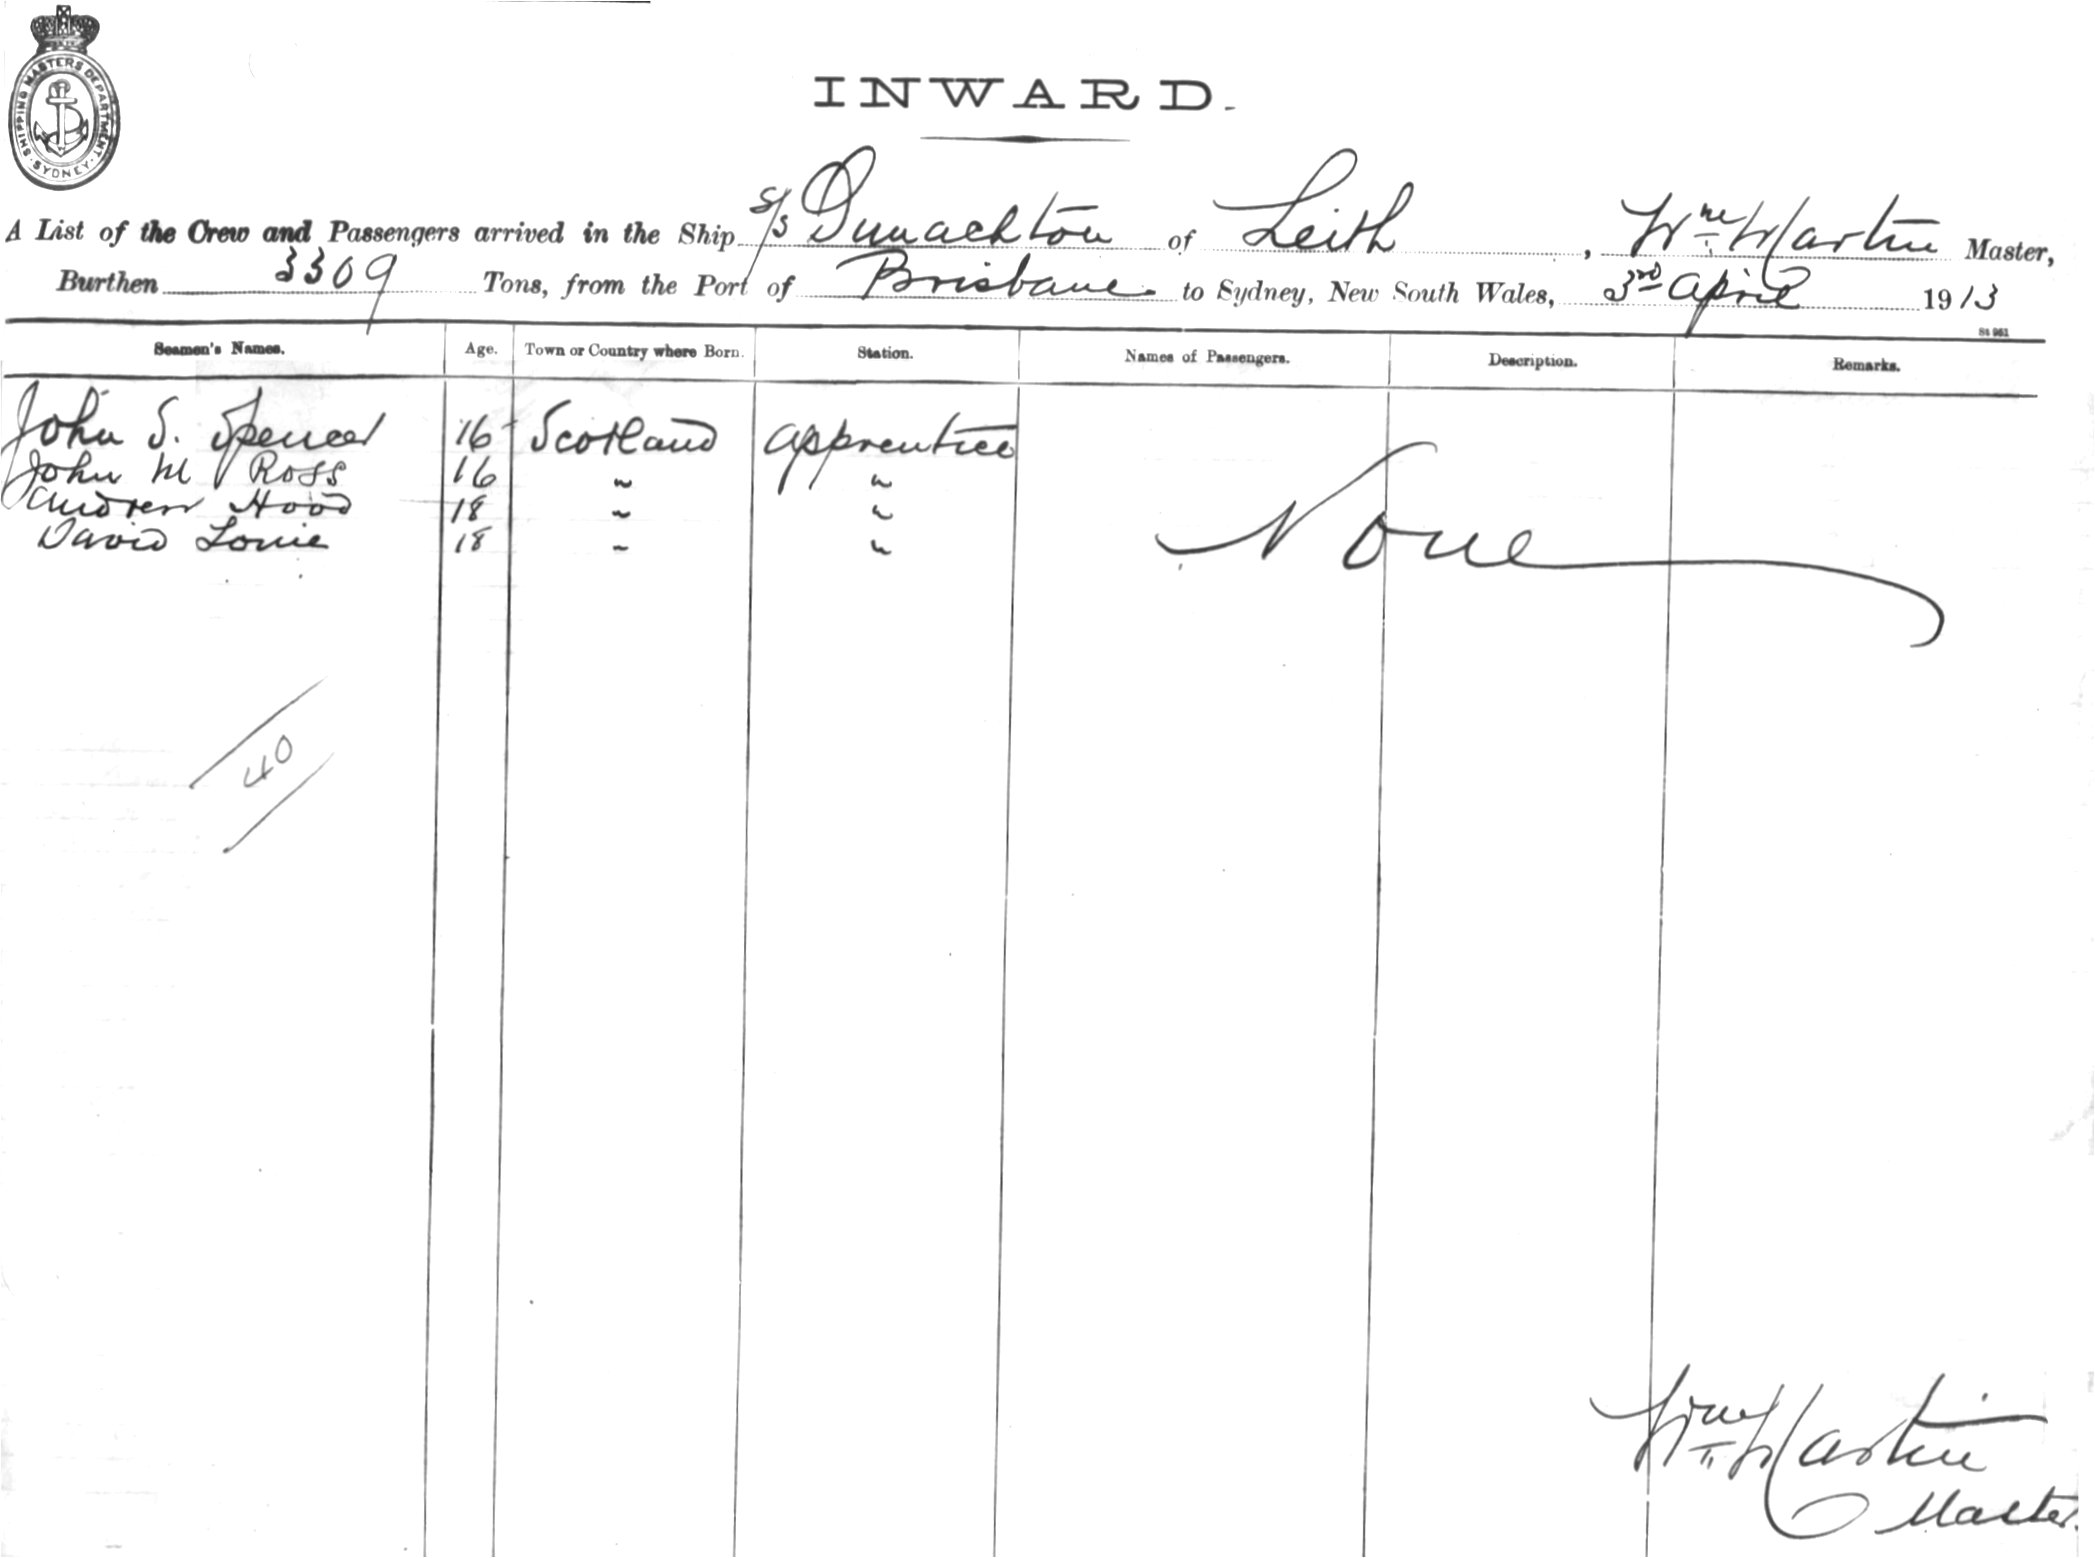 SHIPPING MASTERS DEPARTMENT · SYDNEY ·
INWARD.
A List of the Crew and Passengers arrived in the Ship s/s Dunachton of Leith, Wm Martin Master,
Burthen 3309 Tons, from the Port of Brisbane to Sydney, New South Wales, 3rd April 1913
St 961
Seamen's Names. Age. Town or Country where Born. Station. Names of Passengers. Description. Remarks.
John S. Spencer 16 Scotland apprentice
John M Ross 16 " "
Andrew Hood 18 " "
David Lowie 18 " "
None
40
Wm Martin
Master.